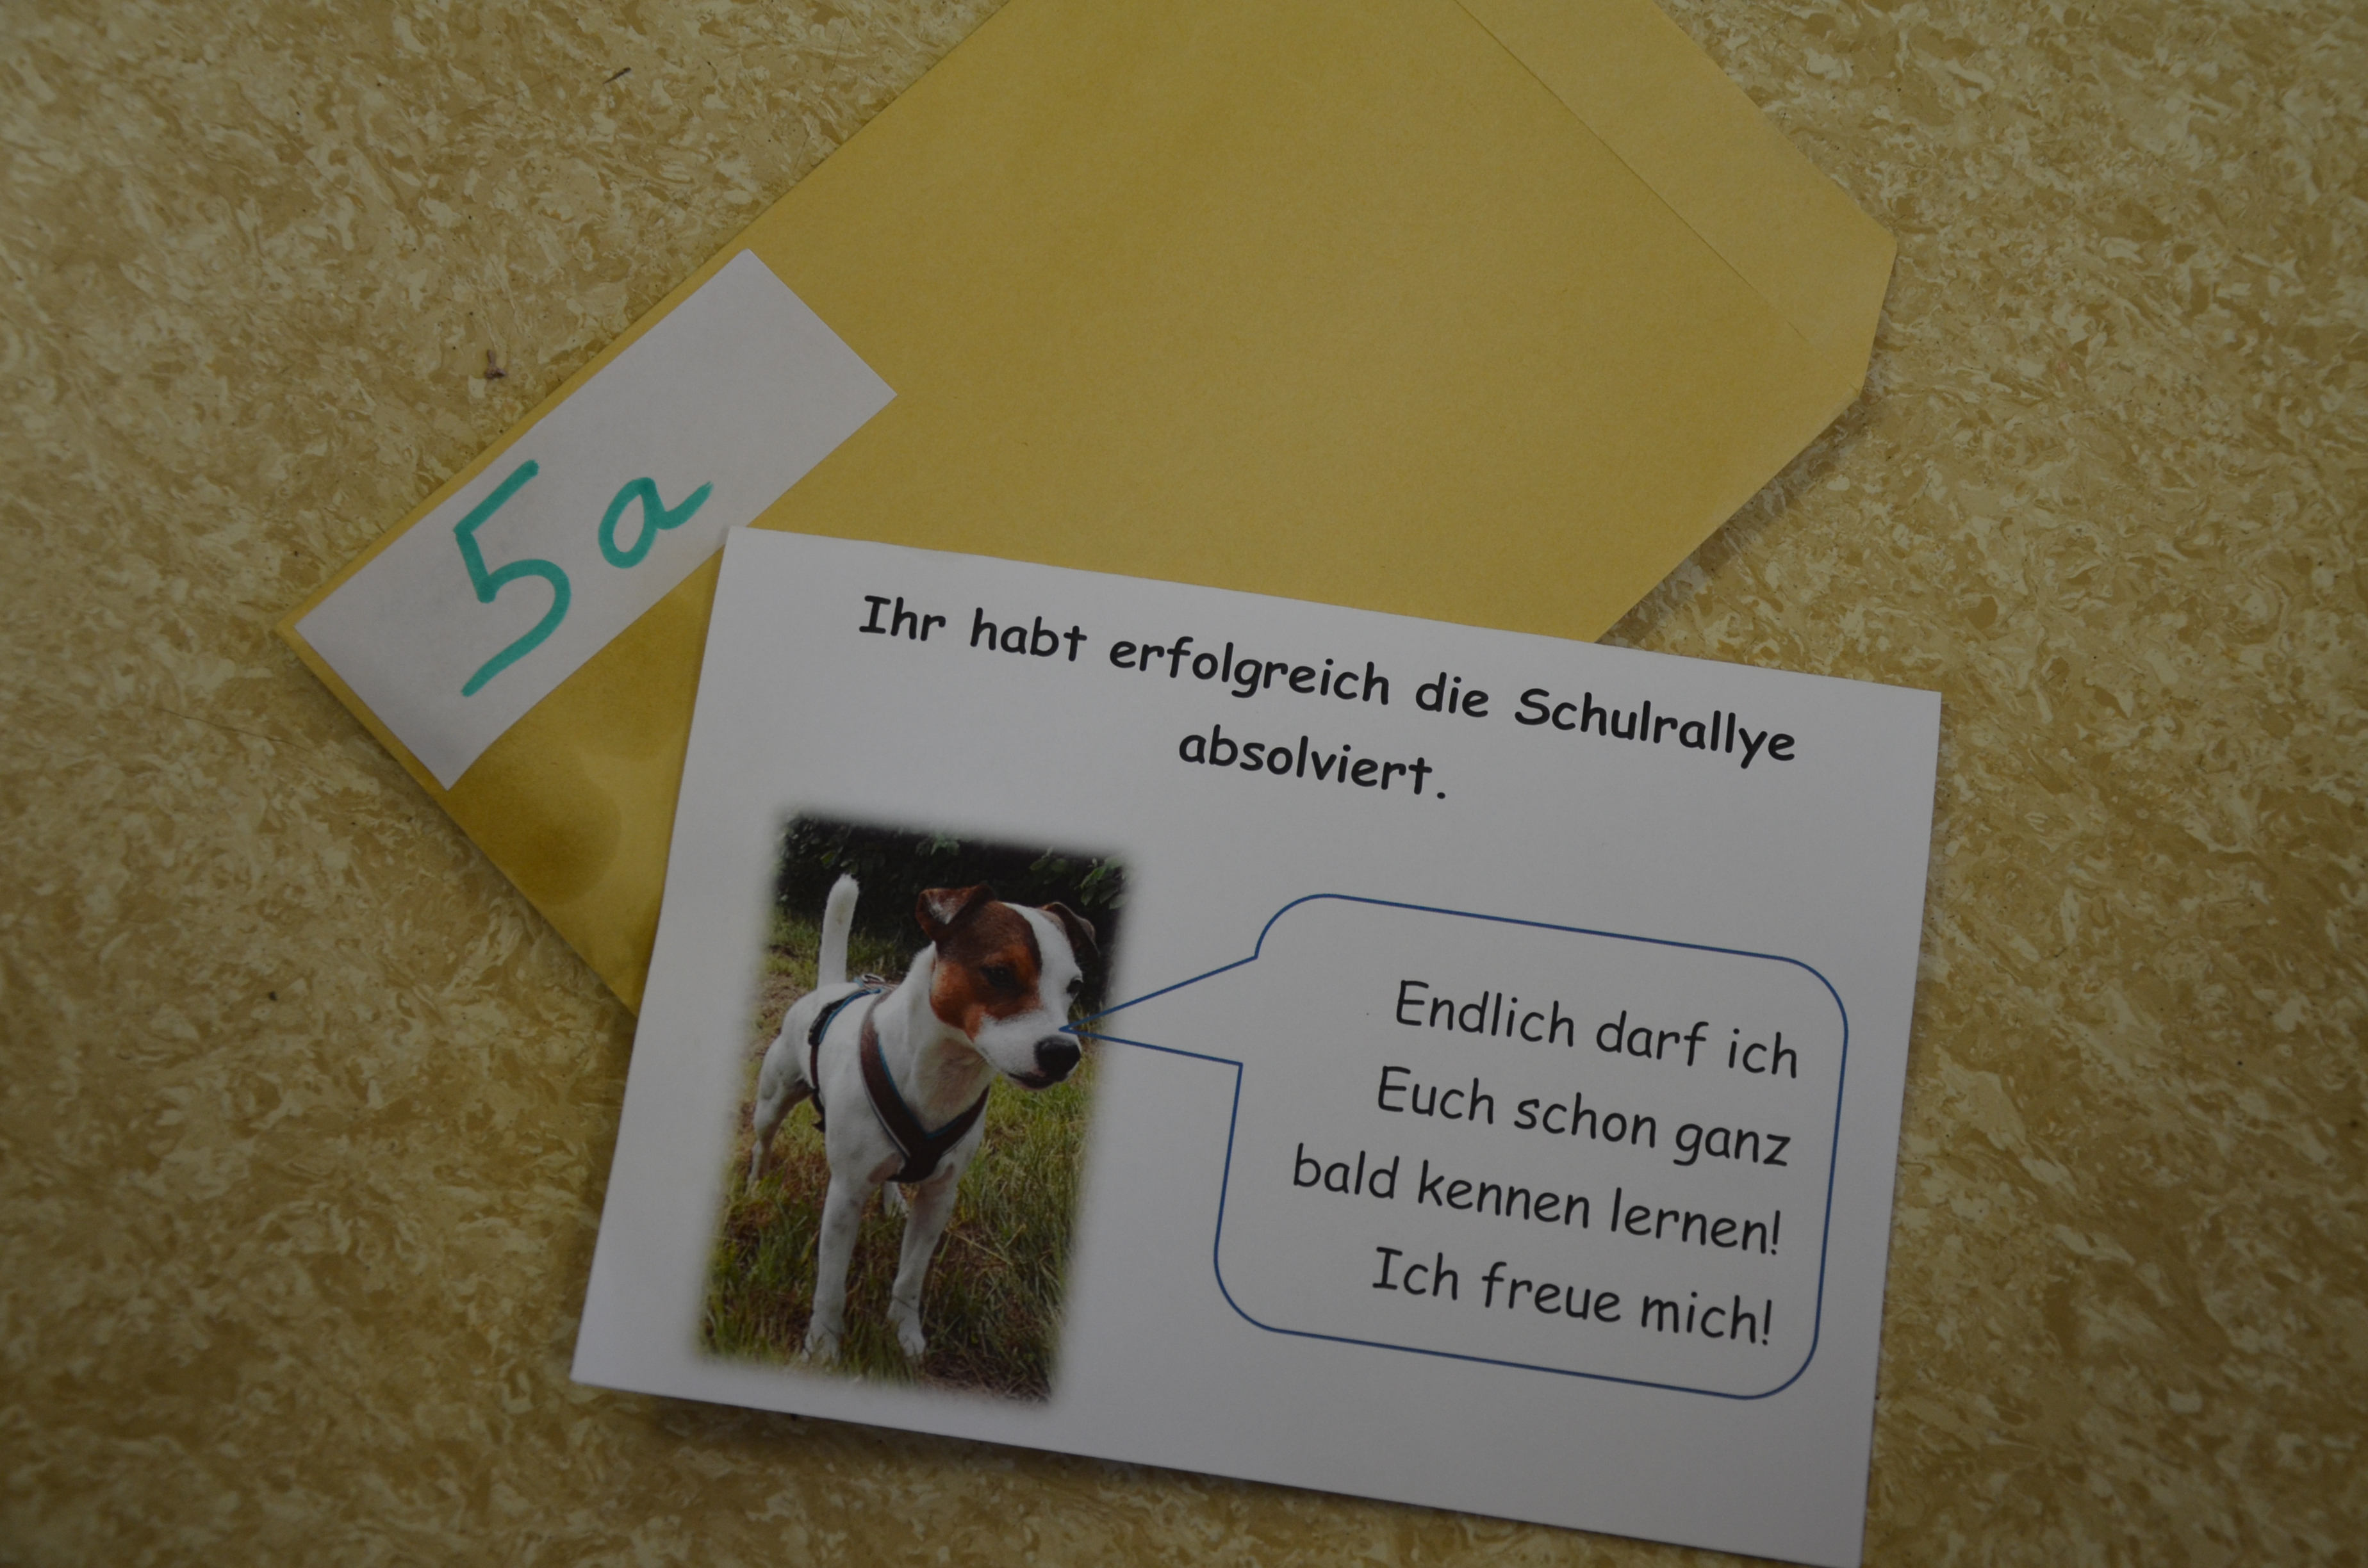 5a
Ihr habt erfolgreich die Schulrallye
absolviert.
Endlich darf ich
Euch schon ganz
bald kennen lernen!
Ich freue mich!